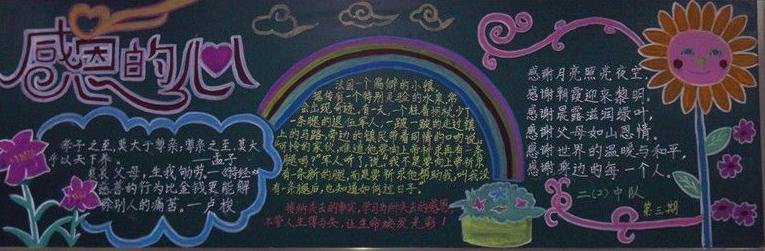 感恩的心
孝子之至，莫大于尊亲，尊亲之至，莫大
乎以天下养。——孟子
哀哀父母，生我劬劳。——《诗经》
慈善的行为比金钱更能解
除别人的痛苦。—卢梭
法国一个偏僻的小镇，
据传有一个特别灵验的水泉，常
会出现奇迹。有一天，一个拄着拐杖，少了
一条腿的退伍军人，一跛一跛的走过镇
上的马路，旁边的镇民带着同情的口吻说，
可怜的家伙，难道他要向上帝祈求再有一
腿吗？"军人听了说，"我不是要向上帝祈求
有一条新的腿，而是要祈求他帮助我，叫我没
有一条腿后，也知道如何过日子。"
接纳失去的事实，学习为所失去的感恩，
不管人生得与失，让生命焕发光彩！
感谢月亮照亮夜空，
感谢朝霞迎来黎明。
感谢晨露滋润绿叶，
感谢父母如山恩情。
感谢世界的温暖与和平，
感谢身边的每一个人。
二（2）中队
第三期